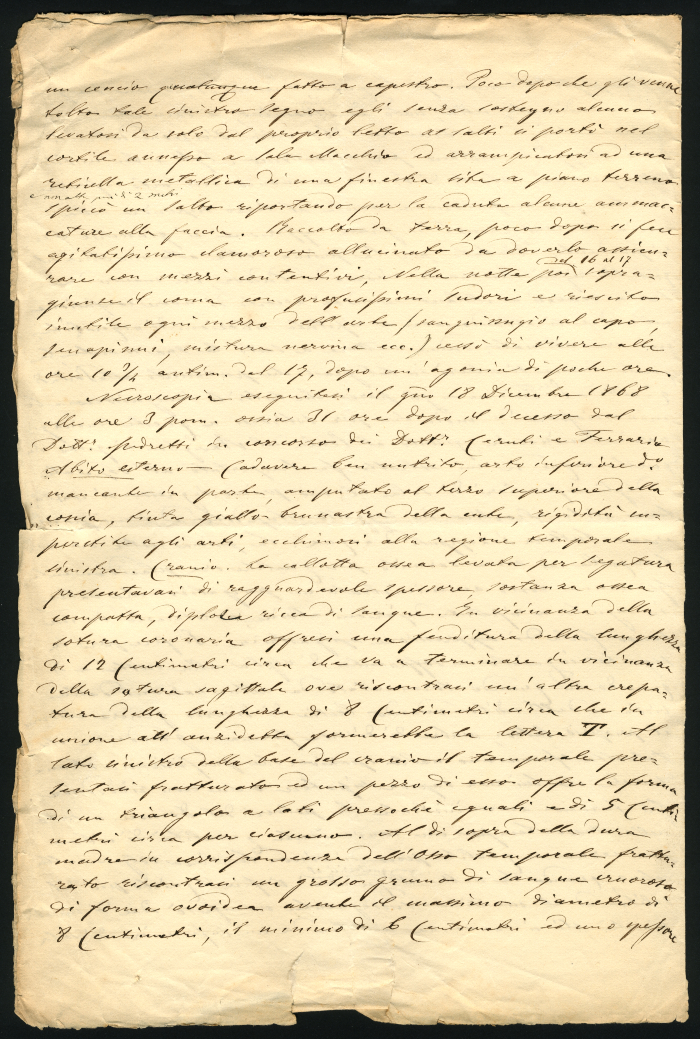 un cencio qualunque fatto a capestro. Poco dopo che gli venne
tolto tale sinistro segno egli senza sostegno alcuno
levatosi da solo dal proprio letto as salti si portò nel
cortile annesso a Sala Macchio ed arrampicatosi ad una
reticella metallica di una finestra sita a piano terreno
e 2 metri
spiccò un salto riportando per la caduta alcune ammac=
cature alla faccia. Raccolto da terra, poco dopo si fece
agitatissimo clamoroso allucinato da doverlo assicu=
rare con mezzi contentivi. Nella notte
del 16 al 17
poi sopra=
giunse il coma con profusissimi sudori e riescito
inutile ogni mezzo dell'arte (sanguisugio al capo,
senapismi, mistura nervina ecc.) cessò di vivere alle
ore 10 ¾ antim. del 17, dopo un'agonia di poche ore.
Necroscopia eseguitasi il gno 18 Dicembre 1868
alle ore 3 pom. ossia 31 ore dopo il decesso dal
Dott.r Pedretti in concorso dei Dott.i Ceruti e Ferrario
Abito esterno — Cadavere ben nutrito, arto inferiore d.o
mancante in parte, amputato al terzo superiore della
coscia, tinta giallo-brunastra della cute, rigidità su=
perstite agli arti, ecchimosi alla regione temporale
sinistra. Cranio. La callotta ossea levata per segatura
presentavasi di ragguardevole spessore, sostanza ossea
compatta, diploe ricca di sangue. In vicinanza della
sutura coronaria offresi una fenditura della lunghezza
di 12 Centimetri circa che va a terminare in vicinanza
della sutura sagittale ove riscontrasi un'altra crepa=
tura della lunghezza di 8 Centimetri circa che in
unione all'anzidetta formerebbe la lettera T. Al
lato sinistro della base del cranio il temporale pre=
sentasi fratturato ed un pezzo di esso offre la forma
di un triangolo a lati pressochè eguali e di 5 Centi
metri circa per ciascuno. Al di sopra della dura
madre in corrispondenza dell'Osso temporale frattu=
rato riscontrasi un grosso grumo di sangue cruoroso
di forma ovoidea avente il massimo diametro di
8 Centimetri, il minimo di 6 Centimetri ed uno spessore